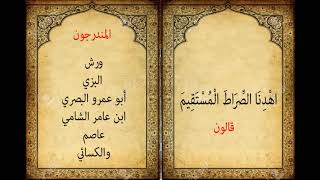 اهْدِنَا الصِّرَاطَ الْمُسْتَقِيمَ
قالون
المندرجون
ورش
البزي
أبو عمرو البصري
ابن عامر الشامي
عاصم
والكسائي